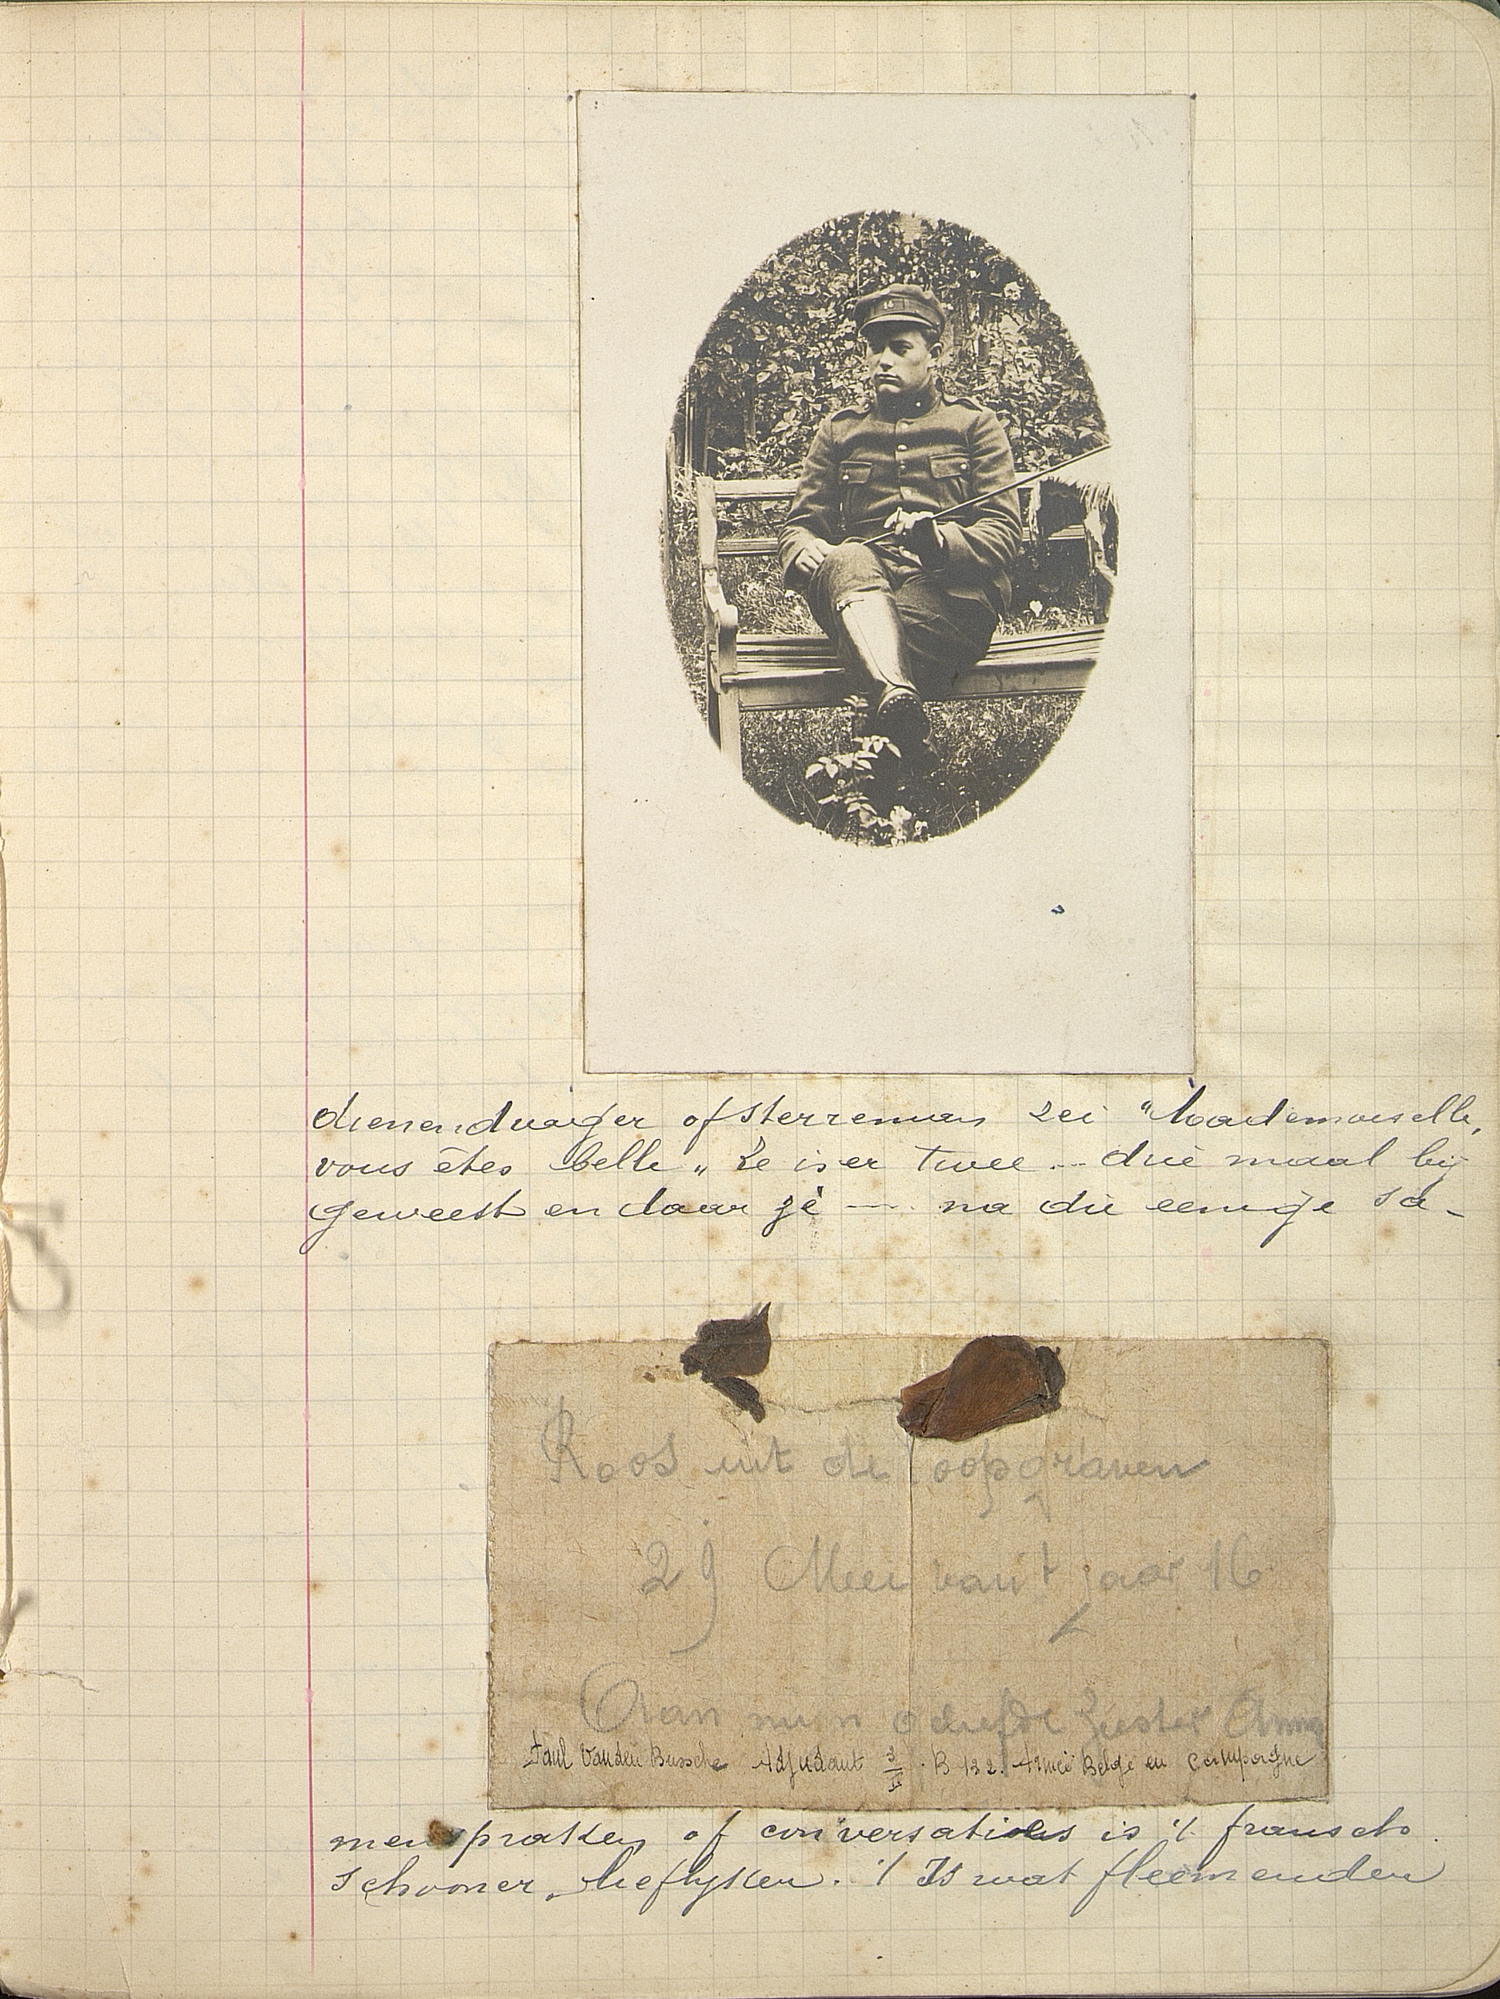 dienenduaiger of Sterreman zei "Mademoiselle,
vous êtes belle „ Ze is er twee ... drie maal bij
geweest en daar je — na die eenige sa-
Roos uit de loopgraven
29 Meei van 't jaar 16
Aan mijn geliefde Zuster Anna
Paul Vanden Bussche Adjudant 3/II . B 122. Armée Belge en Campagne
menspraken of conversaties is 't fransch
schooner, lieflyker. 't Is wat fleemender